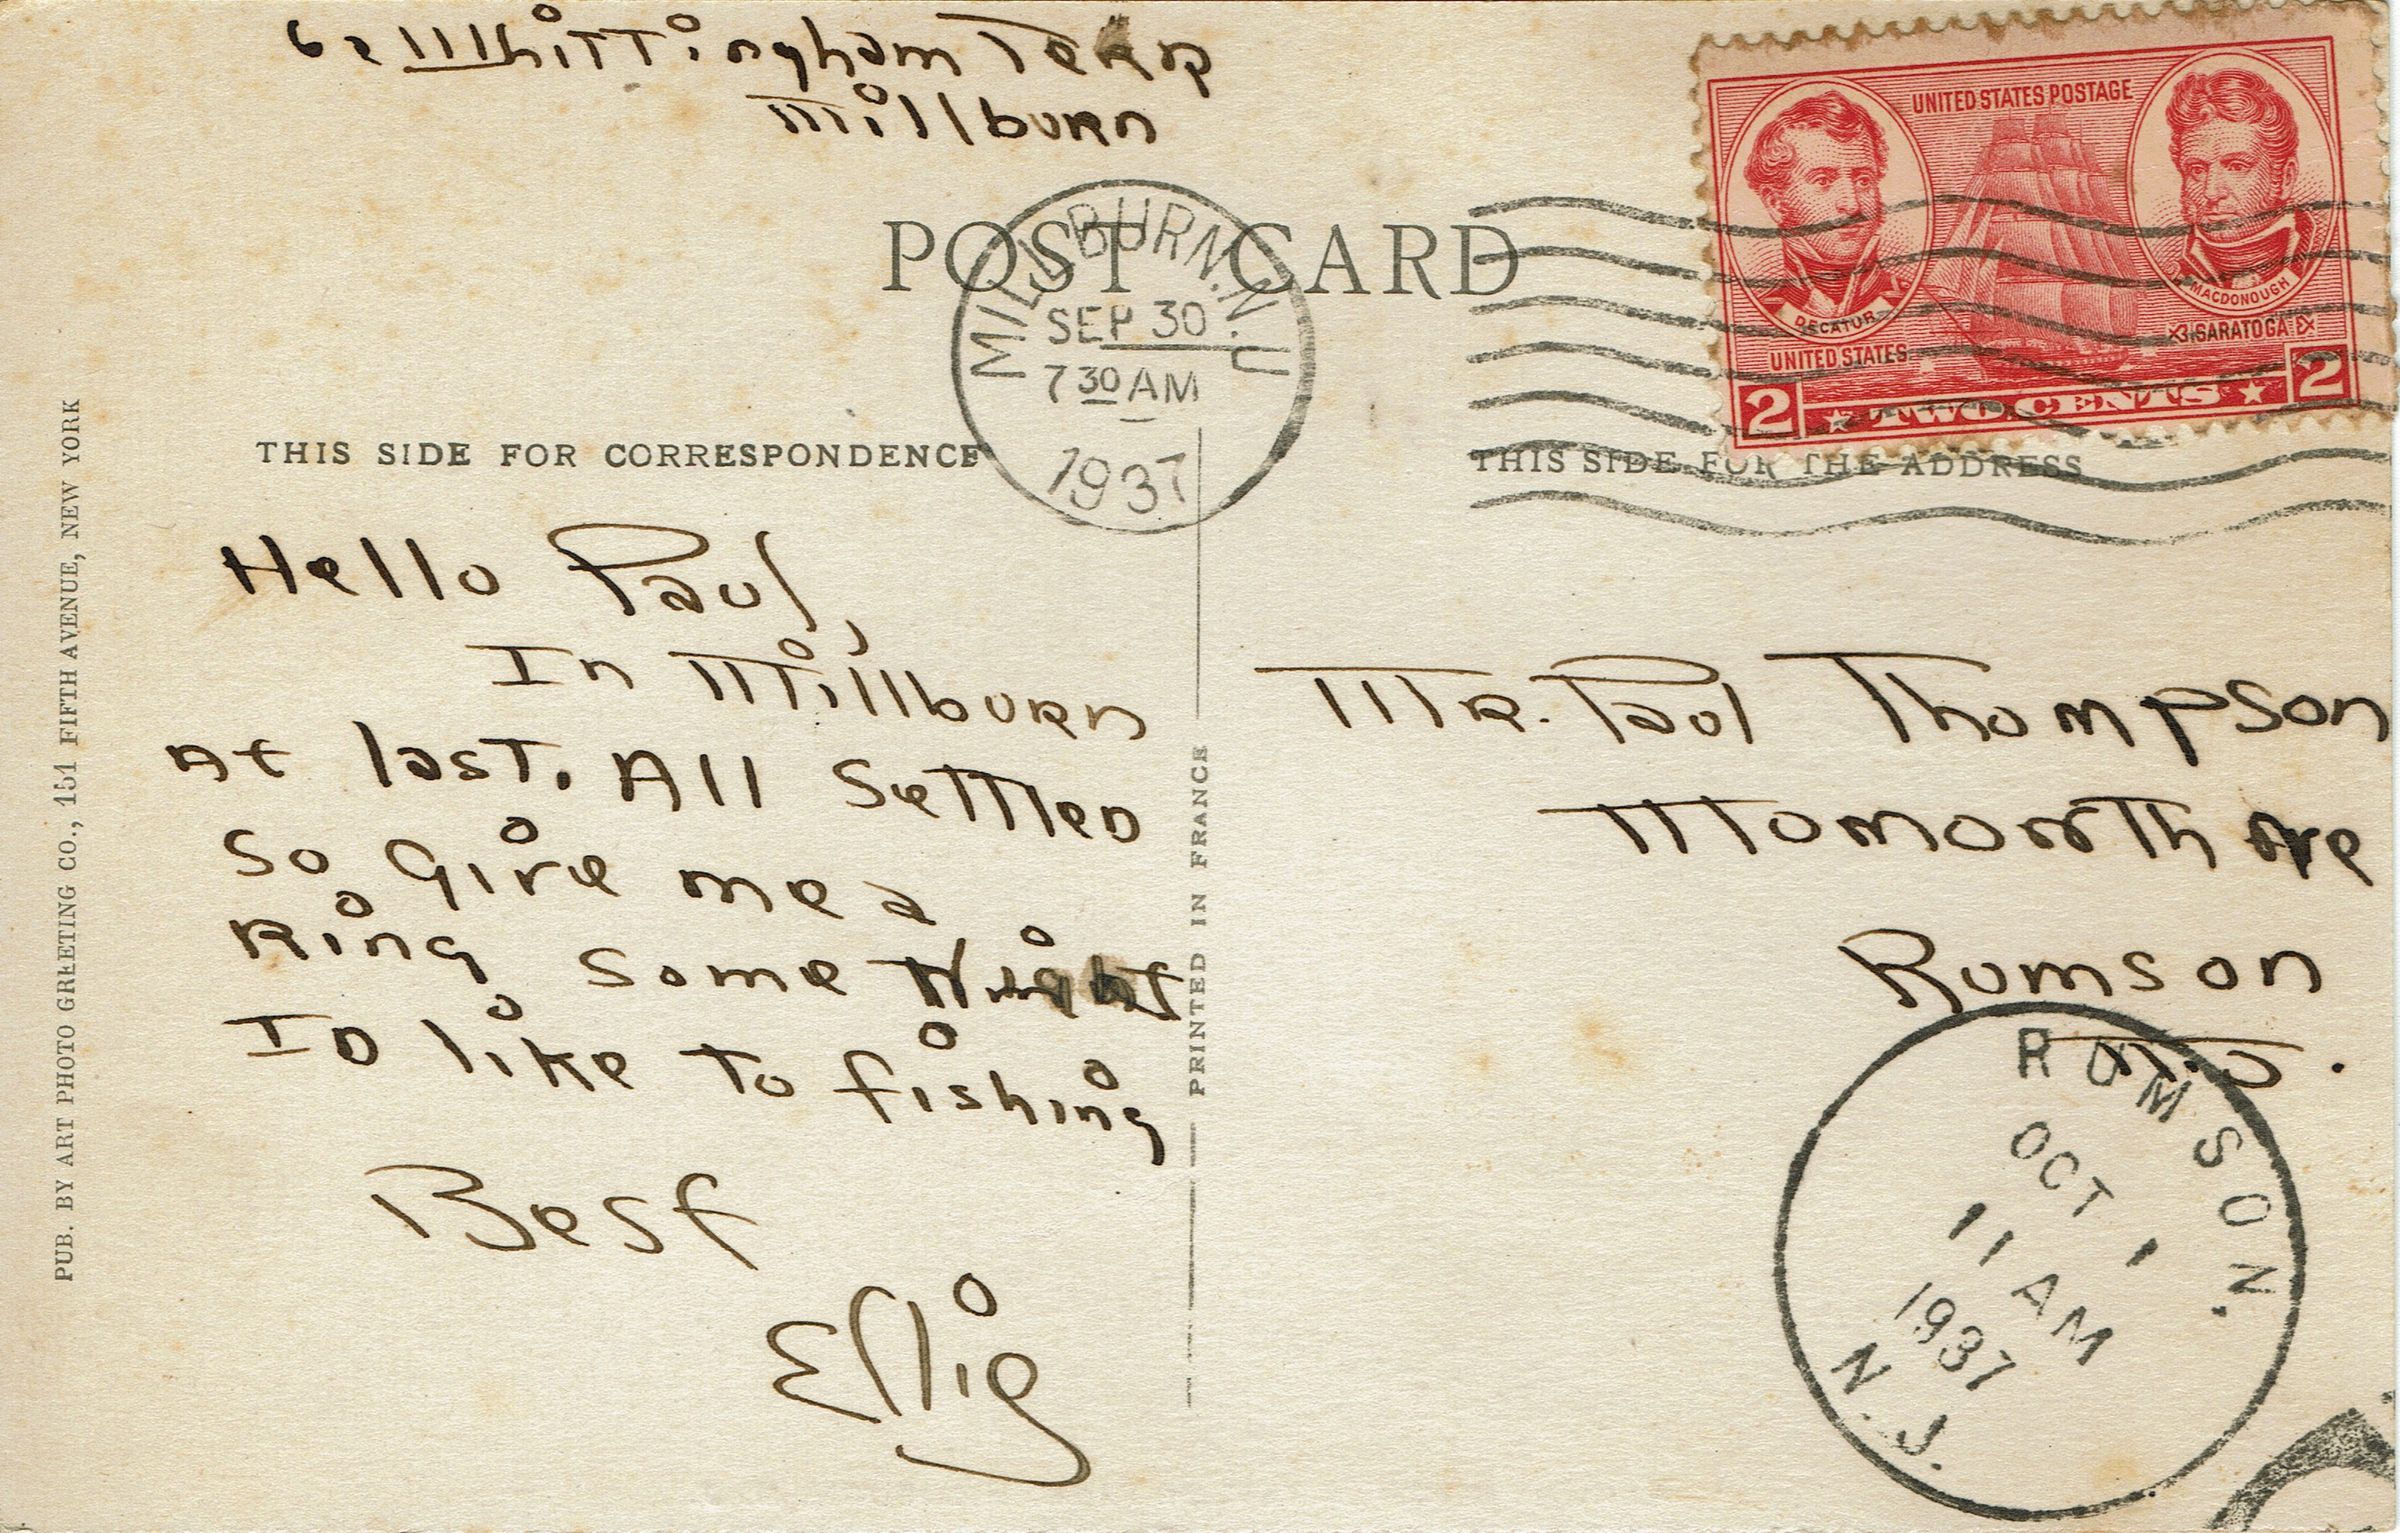 62 Whittingham Terr
Millburn
UNITED STATES POSTAGE
DECATUR
MACDONOUGH
UNITED STATES
SARATOGA
2 TWO CENTS 2
POST CARD
MILLBURN. N. J.
SEP 30
7 30 AM
1937
THIS SIDE FOR CORRESPONDENCE
THIS SIDE FOR THE ADDRESS
Hello Paul,
In Millburn
At last. All Settled
So Give me a
Ring some Night
ID like to fishing
Best
Ellie
PUB. BY ART PHOTO GREETING CO., 151 FIFTH AVENUE, NEW YORK
PRINTED IN FRANCE
MR. Paul Thompson
Ave
Rumson
N.J.
RUMSON. N.J.
OCT 1
11 AM
1937